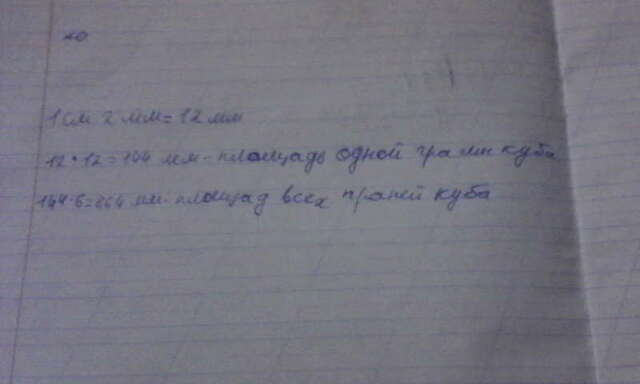 1 см 2 мм = 12 мм
12·12=144 мм - площадь одной грани куба
144·6=864 мм - площад всех граней куба